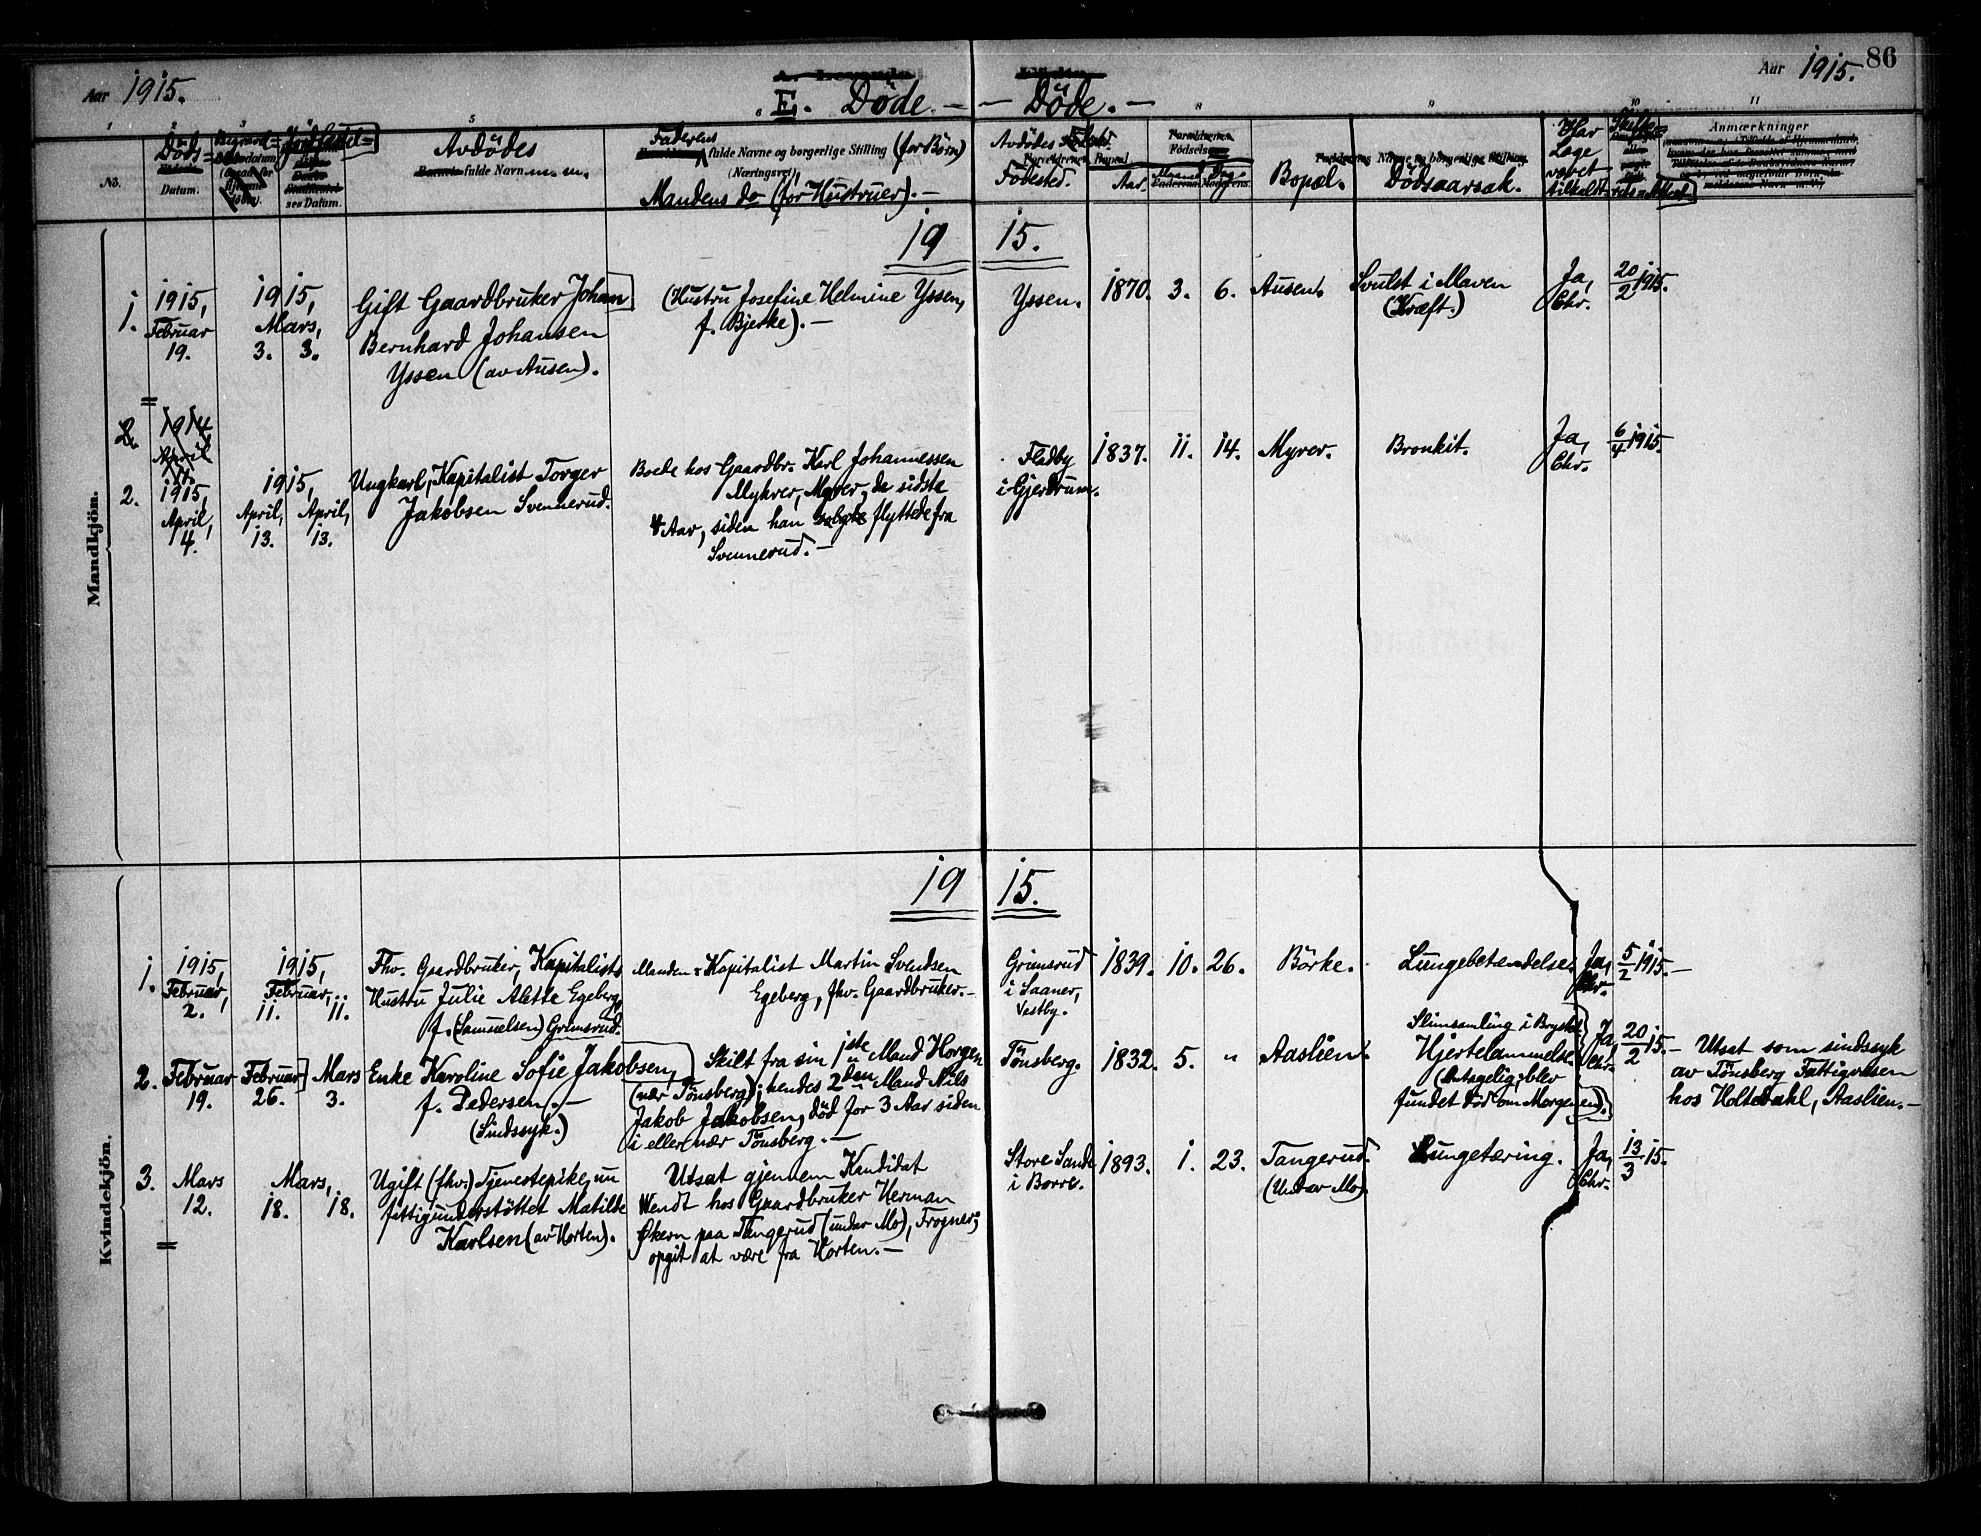 Aar 1915.
E. Døde. — — Døde. —
Aar 1915. 86
1 2 3 5 6 8 9 10 11
No.
Døds=
Datum.
Avdødes
fulde Navn m. m.
Faderens fulde Navne og borgerlige Stilling (for Børn)
(Næringsvei),
Mandens do (for Hustruer). —
Avdødes
Fødested.
Aar. Maaned Dag.
Bopæl.
Dødsaarsak.
Har
Læge
været
tilkaldt
Anmærkninger
Mandkjön.
19 15.
1.
1915,
Februar
19.
1915,
Mars,
3. 3.
Gift Gaardbruker Johan
Bernhard Johansen
Yssen (av Ausen).
(Hustru Josefine Helmine Yssen,
f. Bjerke). —
Yssen.
1870. 3. 6.
Ausen.
Svulst i Maven
(Kræft.)
Ja,
Chr.
20/2 1915.
2.
1914
April
2.
1915,
April,
4.
1915,
April, April,
13. 13.
Ungkarl, Kapitalist Torger
Jakobsen Svennerud.
Boede hos Gaardbr. Karl Johannessen
Myhrer, Myrer, de sidste
4 Aar, siden han solgte flyttede fra
Svennerud. —
Fladby
i Gjerdrum.
1837. 11. 14.
Myrer.
Bronkit.
Ja,
Chr.
6/4 1915.
Kvindekjön.
19 15.
1.
1915,
Februar,
2.
1915,
Februar,
11. 11.
Fhv. Gaardbruker, Kapitalists
Hustru Julie Alette Egeberg,
f. (Samuelsen) Grimsrud.
Manden: Kapitalist Martin Svendsen
Egeberg, fhv. Gaardbruker. —
Grimsrud
i Saaner,
Vestby.
1839. 10. 26.
Börke.
Lungebetændelse.
Ja,
Chr.
5/2 1915. —
2.
Februar
19.
Februar
26.
Mars
3.
Enke Karoline Sofie Jakobsen,
f. Pedersen. —
(Sindssyk.)
Skilt fra sin 1ste Mand Horgen
(nær Tönsberg); hendes 2den Mand Nils
Jakob Jakobsen, död for 3 Aar siden
i eller nær Tönsberg. —
Tönsberg.
1832. 5. "
Aaslien.
Slimsamling i Brystet
Hjertelammelse
(Antagelig; blev
fundet död om Morgenen).
Ja,
Chr.
20/2 15. —
Utsat som sindssyk
av Tönsberg Fattigvæsen
hos Holtedahl, Aaslien. —
3.
Mars
12.
Mars,
18. 18.
Ugift (fhv.) Tjenestepike, nu
fattigunderstöttet Matilde
Karlsen (av Horten).
Utsat gjennem Kandidat
Wendt hos Gaardbruker Herman
Økern paa Tangerud (under Mo), Frogner;
opgit at være fra Horten. —
Store Sande
i Borre.
1893. 1. 23.
Tangerud.
(Under Mo)
Lungetæring.
Ja,
Chr.
13/3 15.